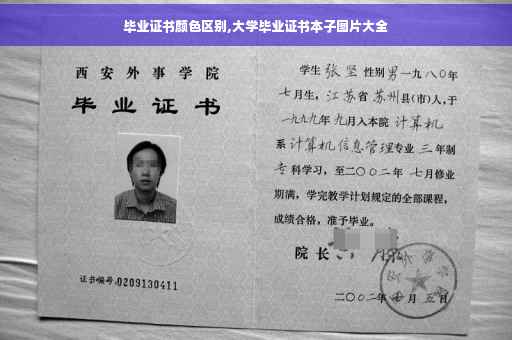 毕业证书颜色区别,大学毕业证书本子图片大全
西安外事学院
毕业证书
证书编号:0209130411
学生 张坚 性别 男 一九八〇年
七月生, 江苏省 苏州县(市)人,于
一九九九年 九月入本院 计算机
系 计算机信息管理专业 三 年制
专科学习, 至二〇〇二年 七月修业
期满, 学完教学计划规定的全部课程,
成绩合格, 准予毕业。
院长
二〇〇二年 月 五日